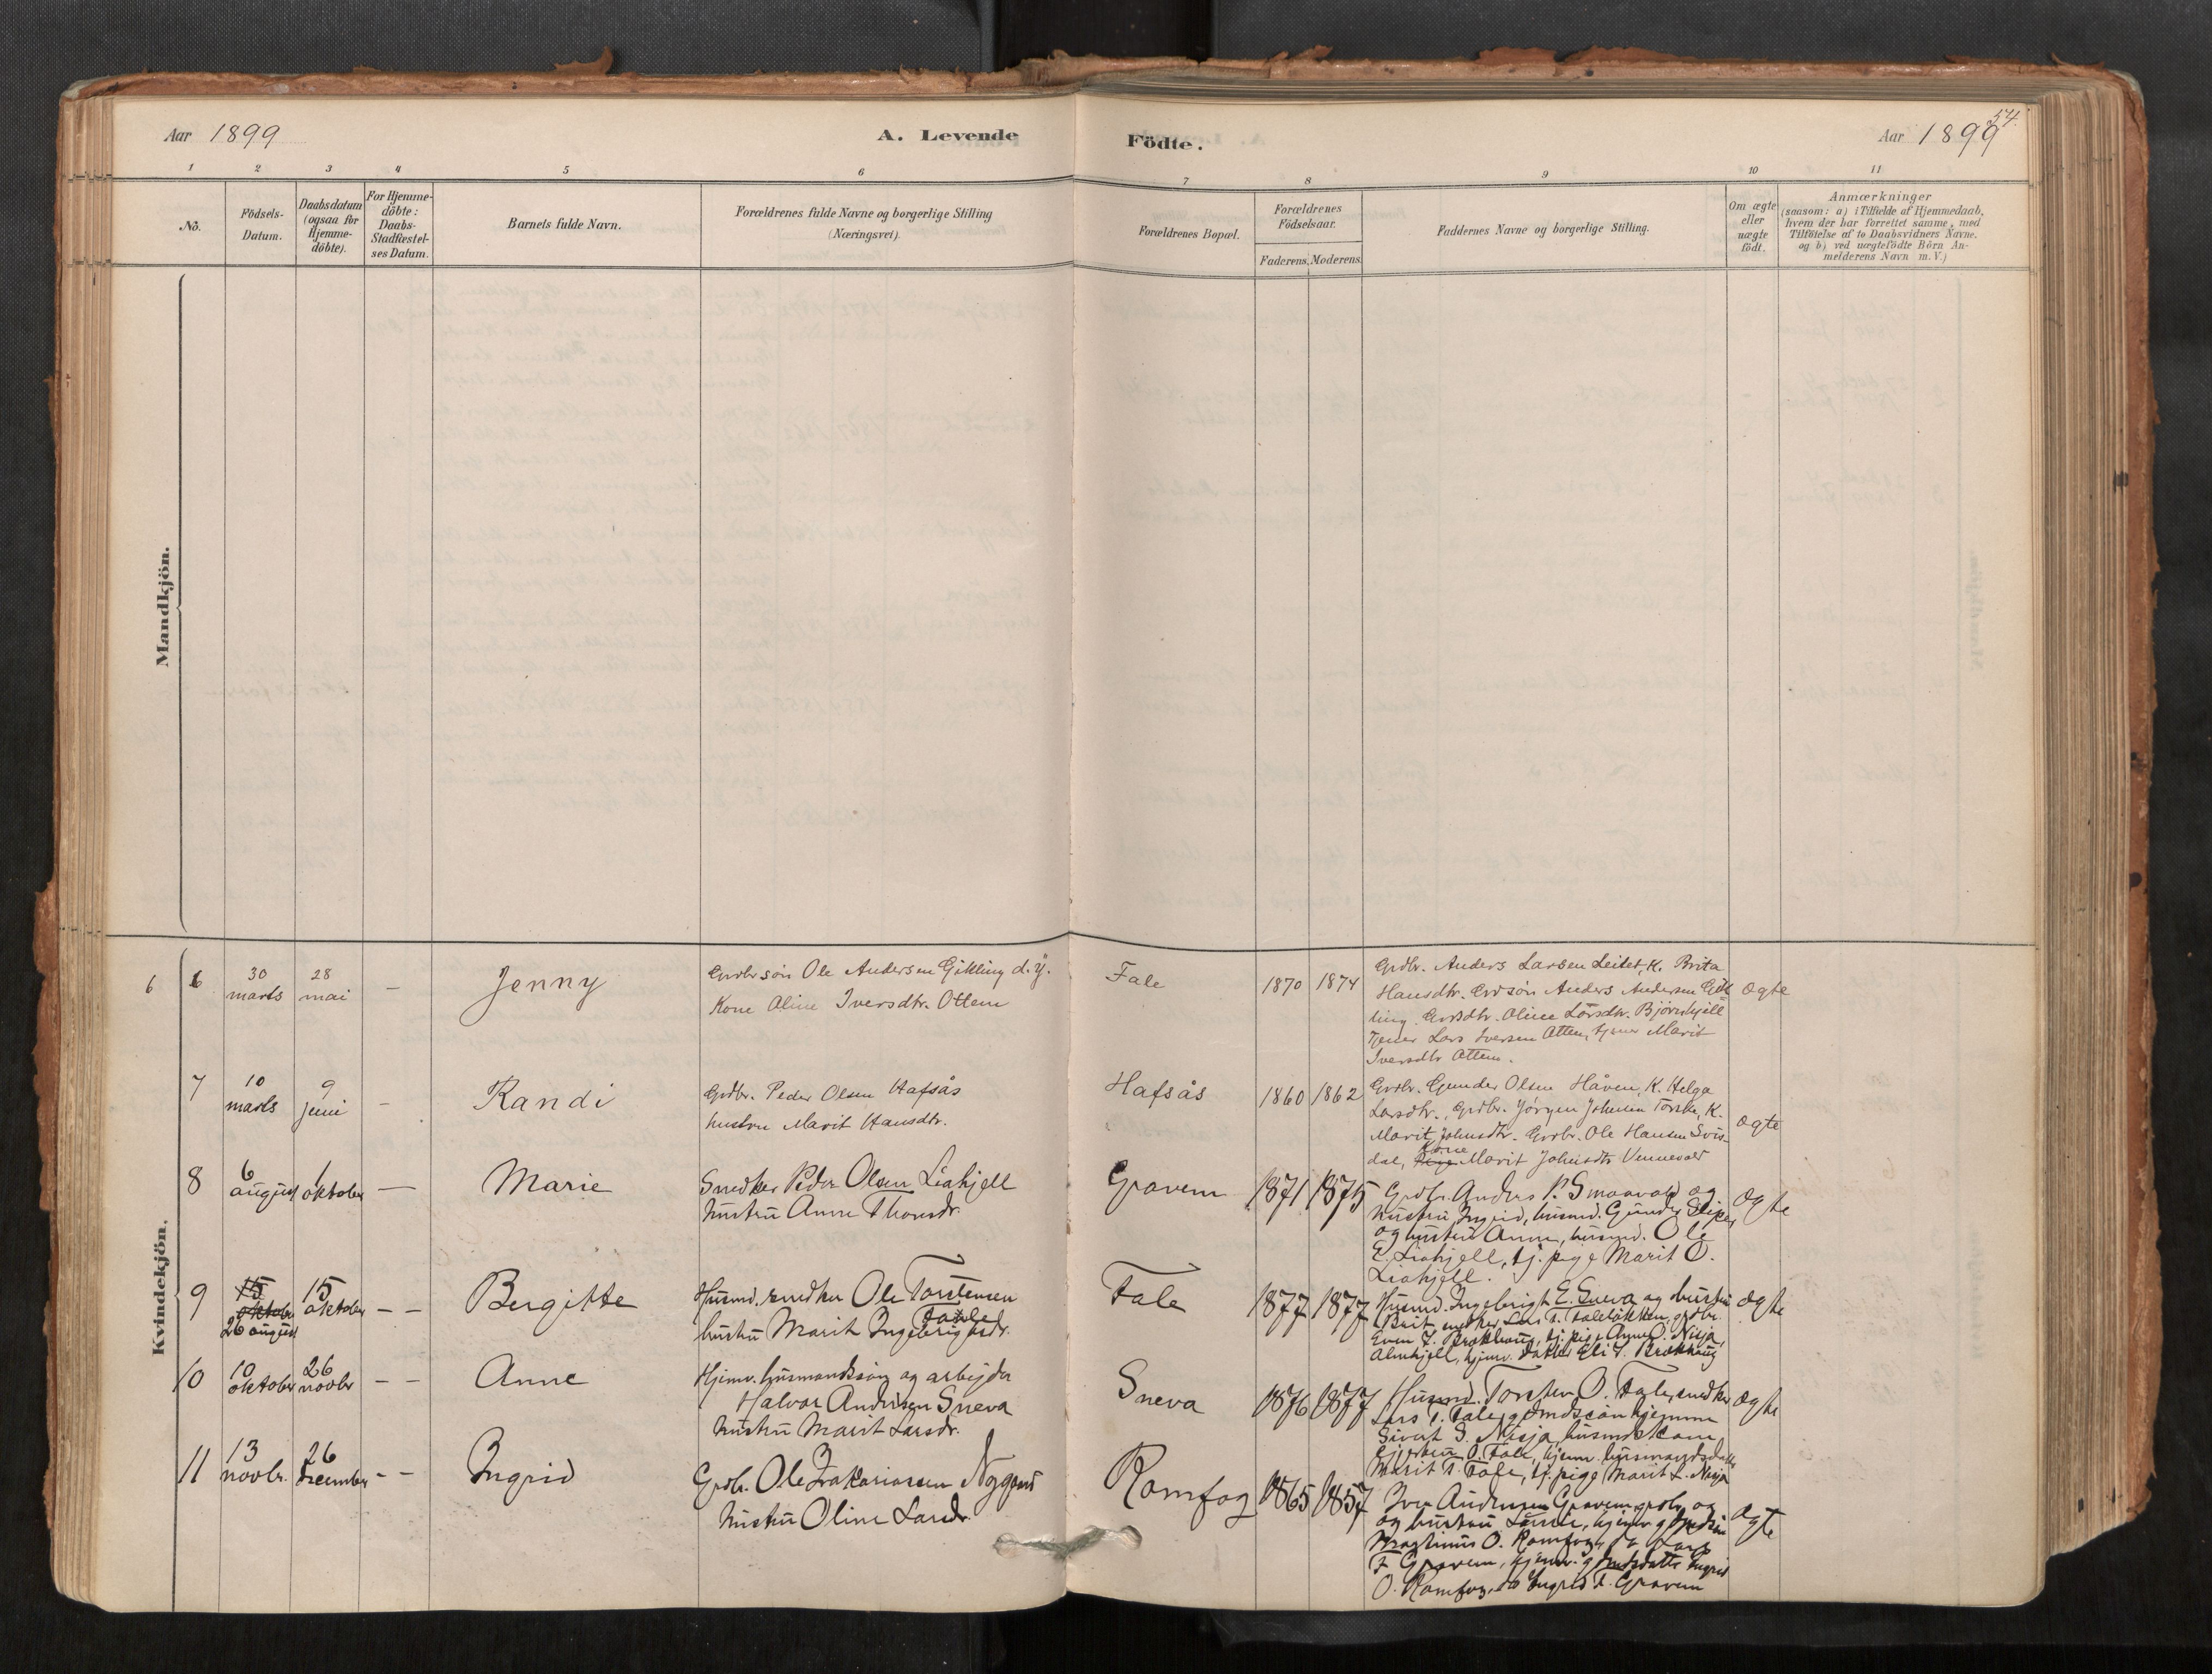 54.
Aar 1899
A. Levende
Födte.
Aar 1899
1 2 3 4 5 6 7 8 9 10 11
No.
Födsels-
Datum.
Daabsdatum
(ogsaa for
Hjemme-
döbte).
For Hjemme-
döbte:
Daabs-
Stadfæstel-
ses Datum.
Barnets fulde Navn.
Forældrenes fulde Navne og borgerlige Stilling
(Næringsvei).
Forældrenes Bopæl.
Forældrenes
Födselsaar.
Faderens. Moderens.
Faddernes Navne og borgerlige Stilling.
Om ægte
eller
uægte
födt.
Anmærkninger
(saasom: a) i Tilfælde af Hjemmedaab,
hvem der har forrettet samme, med
Tilföielse af to Daabsvidners Navne.
og b) ved uægtefödte Börn An-
melderens Navn m.V.)
Mandkjön.
Kvindekjön.
6
6
30
marts
28
mai
—
Jenny
Grdbrsön Ole Andersen Gikling d.y.
Kone Oline Iversdtr. Ottem
Fale
1870 1874
Grdbr. Anders Larsen Leitet, K. Brita
Hansdtr. Grdsön Anders Andersen Gik
ling. Grdbdtr. Oline Larsdtr. Björnhjell
Tjener Lars Iversen Ottem, tjener Marit
Iversdtr Ottem.
ægte
7
10
marts
9
juni
-
Randi
Grdbr. Peder Olsen Hafsås
hustru Marit Hansdtr.
Hafsås
1860 1862
Grdbr. Gunder Olsen Håven, K. Helga
Larsdtr., Grdbr. Jörgen Johnsen Torske, K.
Marit Johnsdtr. Grdbr. Ole Hansen Svis-
dal, Kone Marit Johnsdtr Vennevold
ægte
8
6
august
1
oktober
—
Marie
Snedker Peder Olsen Liahjell
hustru Anne Thorsdr.
Gravem
1871 1875
Grdbr. Anders P. Smaavold og
hustru Ingrid, husmd. Gunder Sliper
og hustru Anne, husmd. Ole
E. Liahjell, tj. pige Marit O.
Liahjell.
ægte
9
15
oktober
26 august
15
oktober
- -
Bergitte
Husmd. snedker Ole Torstensen
Fale
hustru Marit Ingebrigtsdr.
Fale
1877 1877
Husmd. Ingebrigt E. Sneva og hustru
Brit snedker Lars T. Faleløkken, grdbr.
Even J. Brækhaug, tj. pige Anne O. Nisja,
Almhjell, hjemv. datter Eli I. Brækhaug
ægte
10
10
oktober
26
novbr
- -
Anne
Hjemv. husmandssön og arbejder
Halvor Andersen Sneva
hustru Marit Larsdr.
Sneva
1876 1877
Husmd. Torsten O. Fale, snedker
Lars T. Fale, grdmdssön hjemme
Sivert S. Nisja, husmdskone
O. Fale, hjemv. husmandsdatter
Marit T. Fale, tj. pige Marit L. Nisja
ægte
11
13
novbr.
26
December
- -
Ingrid
Grdbr. Ole Zakariassen Nygaard
hustru Oline Larsdr.
Romfog
1865 1857
Iver Andersen Gravem grdbr og
og hustru hjemv grdmdsön
Magnus O. Romfog, do Lars
F Gravem, hjemv. grdmdsdatter Ingrid
O. Romfog, do Ingrid F. Gravem
ægte